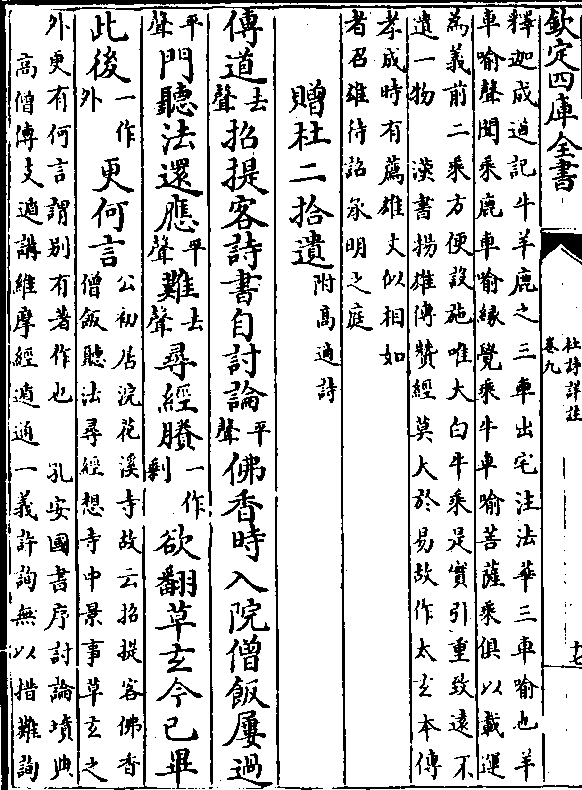 欽定四庫全書
杜詩詳註
卷九
十七
釋迦成道記牛羊鹿之三車出宅注法華三車喻也羊
車喻聲聞乘鹿車喻緣覺乘牛車喻菩薩乘俱以載運
為義前二乘方便設施唯大白牛乘是實引重致遠不
遺一物　漢書揚雄傳贊經莫大於易故作太玄本傳
孝成時有薦雄文似相如
者召雄待詔承明之庭
贈杜二拾遺附高適詩
傳道去聲招提客詩書自討論平聲佛香時入院僧飯屢過
平聲門聽法還應平聲難去聲尋經賸一作剩欲翻草玄今已畢
此後一作外更何言公初居浣花溪寺故云招提客佛香
僧飯聽法尋經想寺中景事草玄之
外更有何言謂別有著作也　孔安國書序討論墳典
高僧傳支遁講維摩經遁通一義許詢無以措難詢